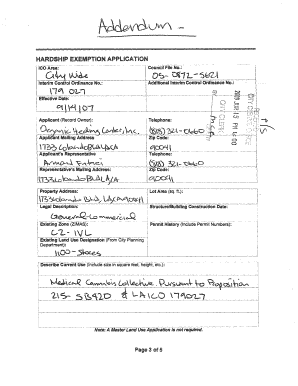 Addendum -
HARDSHIP EXEMPTION APPLICATION
ICO Area: Council File No.:
City Wide 05-0872-S621
Interim Control Ordinance No.: Additional Interim Control Ordinance No.:
179 027
Effective Date:
9/14/07
Applicant (Record Owner): Telephone:
Organic Healing Center, Inc. (818) 321-0660
Applicant Mailing Address Zip Code:
1733 Colorado Blvd LA 90041
Applicant's Representative Telephone:
Armand (818) 321-0660
Representative's Mailing Address: Zip Code:
1733 Colorado Blvd LA CA 90041
Property Address: Lot Area (sq. ft.):
1733 Colorado Blvd, LA CA 90041
Legal Description: Structure/Building Construction Date:
General Commercial
Existing Zone (ZIMAS): Permit History (Include Permit Numbers):
C2-1VL
Existing Land Use Designation (From City Planning Department):
1100-Stores
Describe Current Use (Include size in square feet, height, etc.):
Medical Cannabis Collective Pursuant to Proposition
215 - SB420 & LA ICO 179027
Note: A Master Land Use Application is not required.
Page 3 of 5